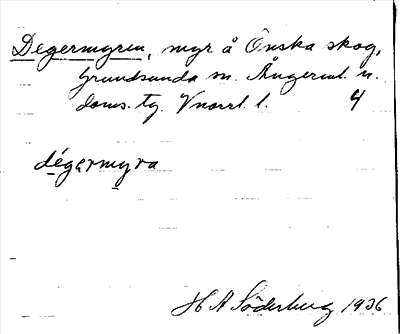 Degermyren, myr å Önska skog,
Grundsunda sn. Ångerml. n.
doms. tg. Vnorrl. l. 4
dégermyra
H A Söderberg 1936